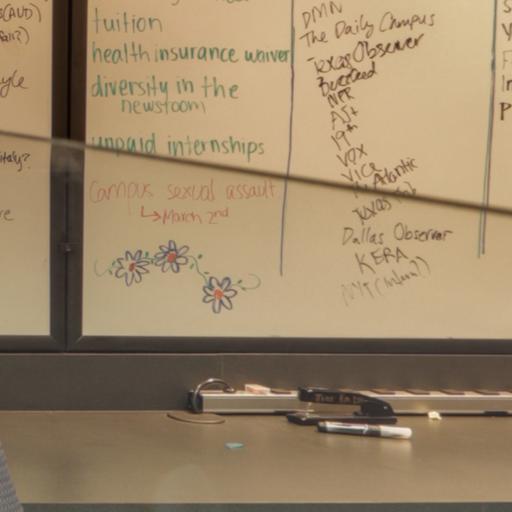 tuition
health insurance waiver
diversity in the
newsroom
unpaid internships
campus sexual assault
↳ March 2nd
DMN
The Daily Campus
Texas Observer
Buzzfeed
NPR
AJ+
19th
VOX
VICE
Atlantic
Texas
Dallas Observer
KERA
NYT
(AUD)
yle
italy?
re